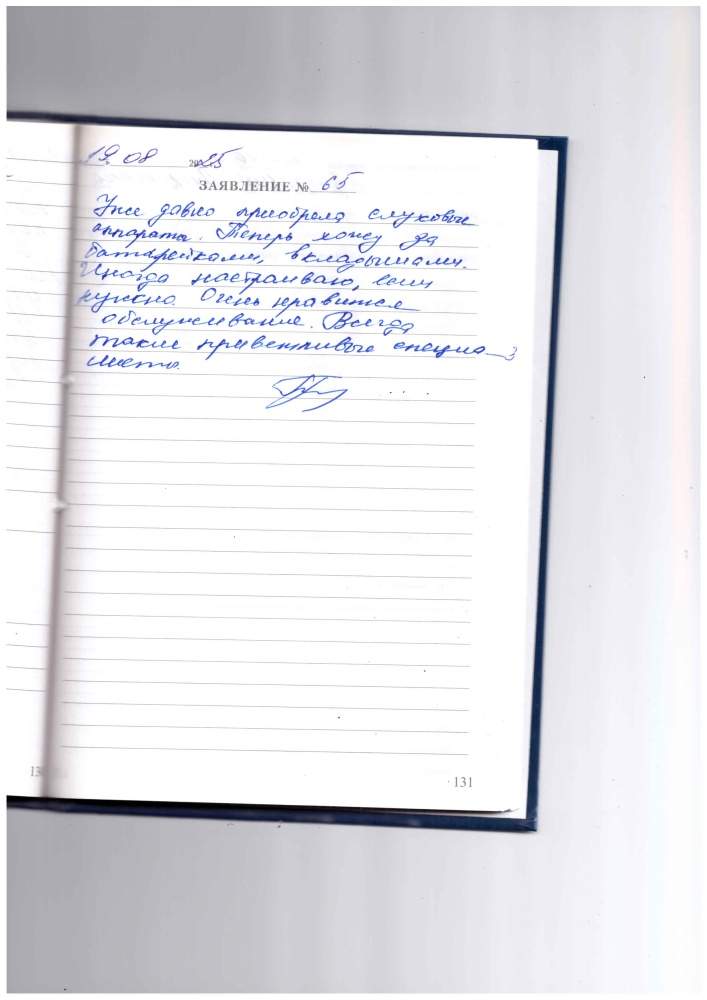 19 08 2025
ЗАЯВЛЕНИЕ № 65
Уже давно приобрела слуховые
аппараты. Теперь хожу за
батарейками, вкладышами.
Иногда настраиваю, если
нужно. Очень нравится
обслуживание. Всегда
такие приветливые специа-
листы.
131